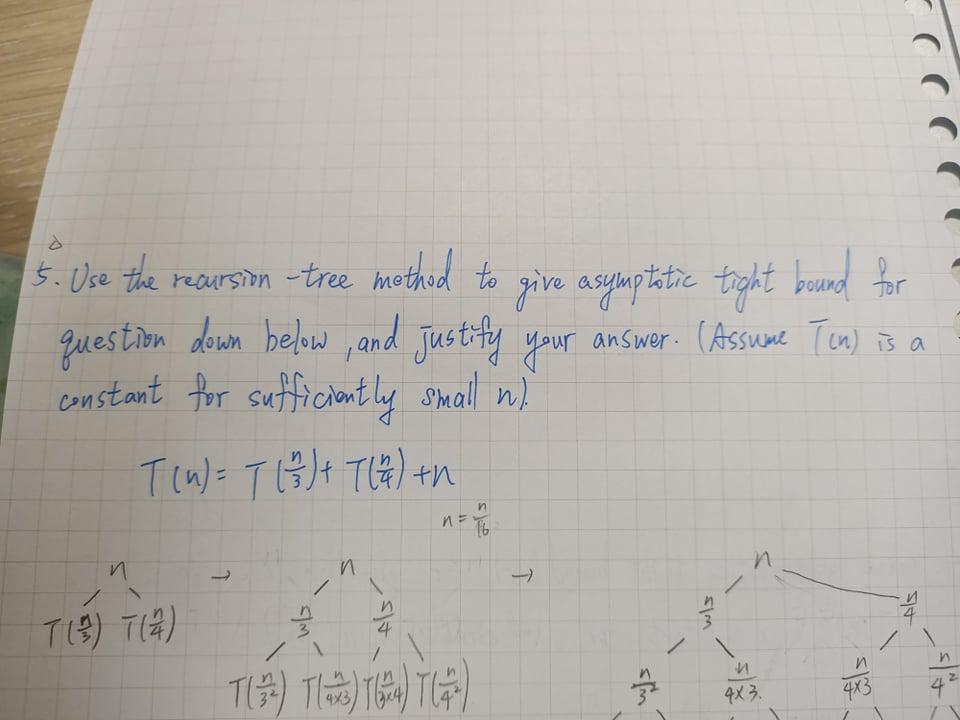 5. Use the recursion-tree method to give asymptotic tight bound for
question down below, and justify your answer. (Assume T(n) is a
constant for sufficiently small n).
T(n) = T(n/3) + T(n/4) + n
n = n/16
n → n → n
n/3 n/4 n/3 n/4
T(n/3) T(n/4)
T(n/3²) T(n/4×3) T(n/3×4) T(n/4²) n/3² n/4×3. n/4×3 n/4²